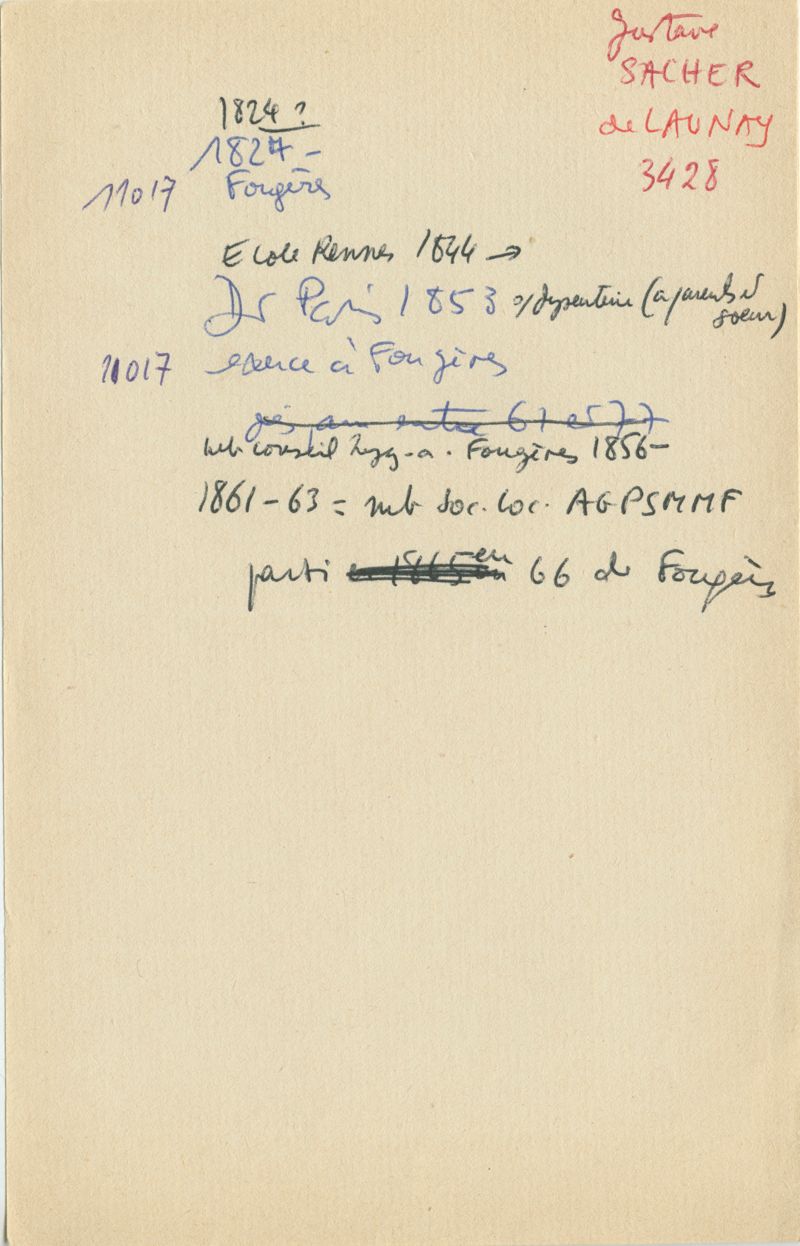 Gustave
SACHER
de LAUNAY
3428
1824 ?
1827 -
11017 Fougères
Ecole Rennes 1844 →
Dr Paris 1853 s/dysenterie (a parents et
soeur)
11017 exerce à Fougères
entre 67 et 77
mb conseil hyg. a. Fougères 1856-
1861-63 = mb Soc. loc. AGPSMMF
parti en 66 de Fougères